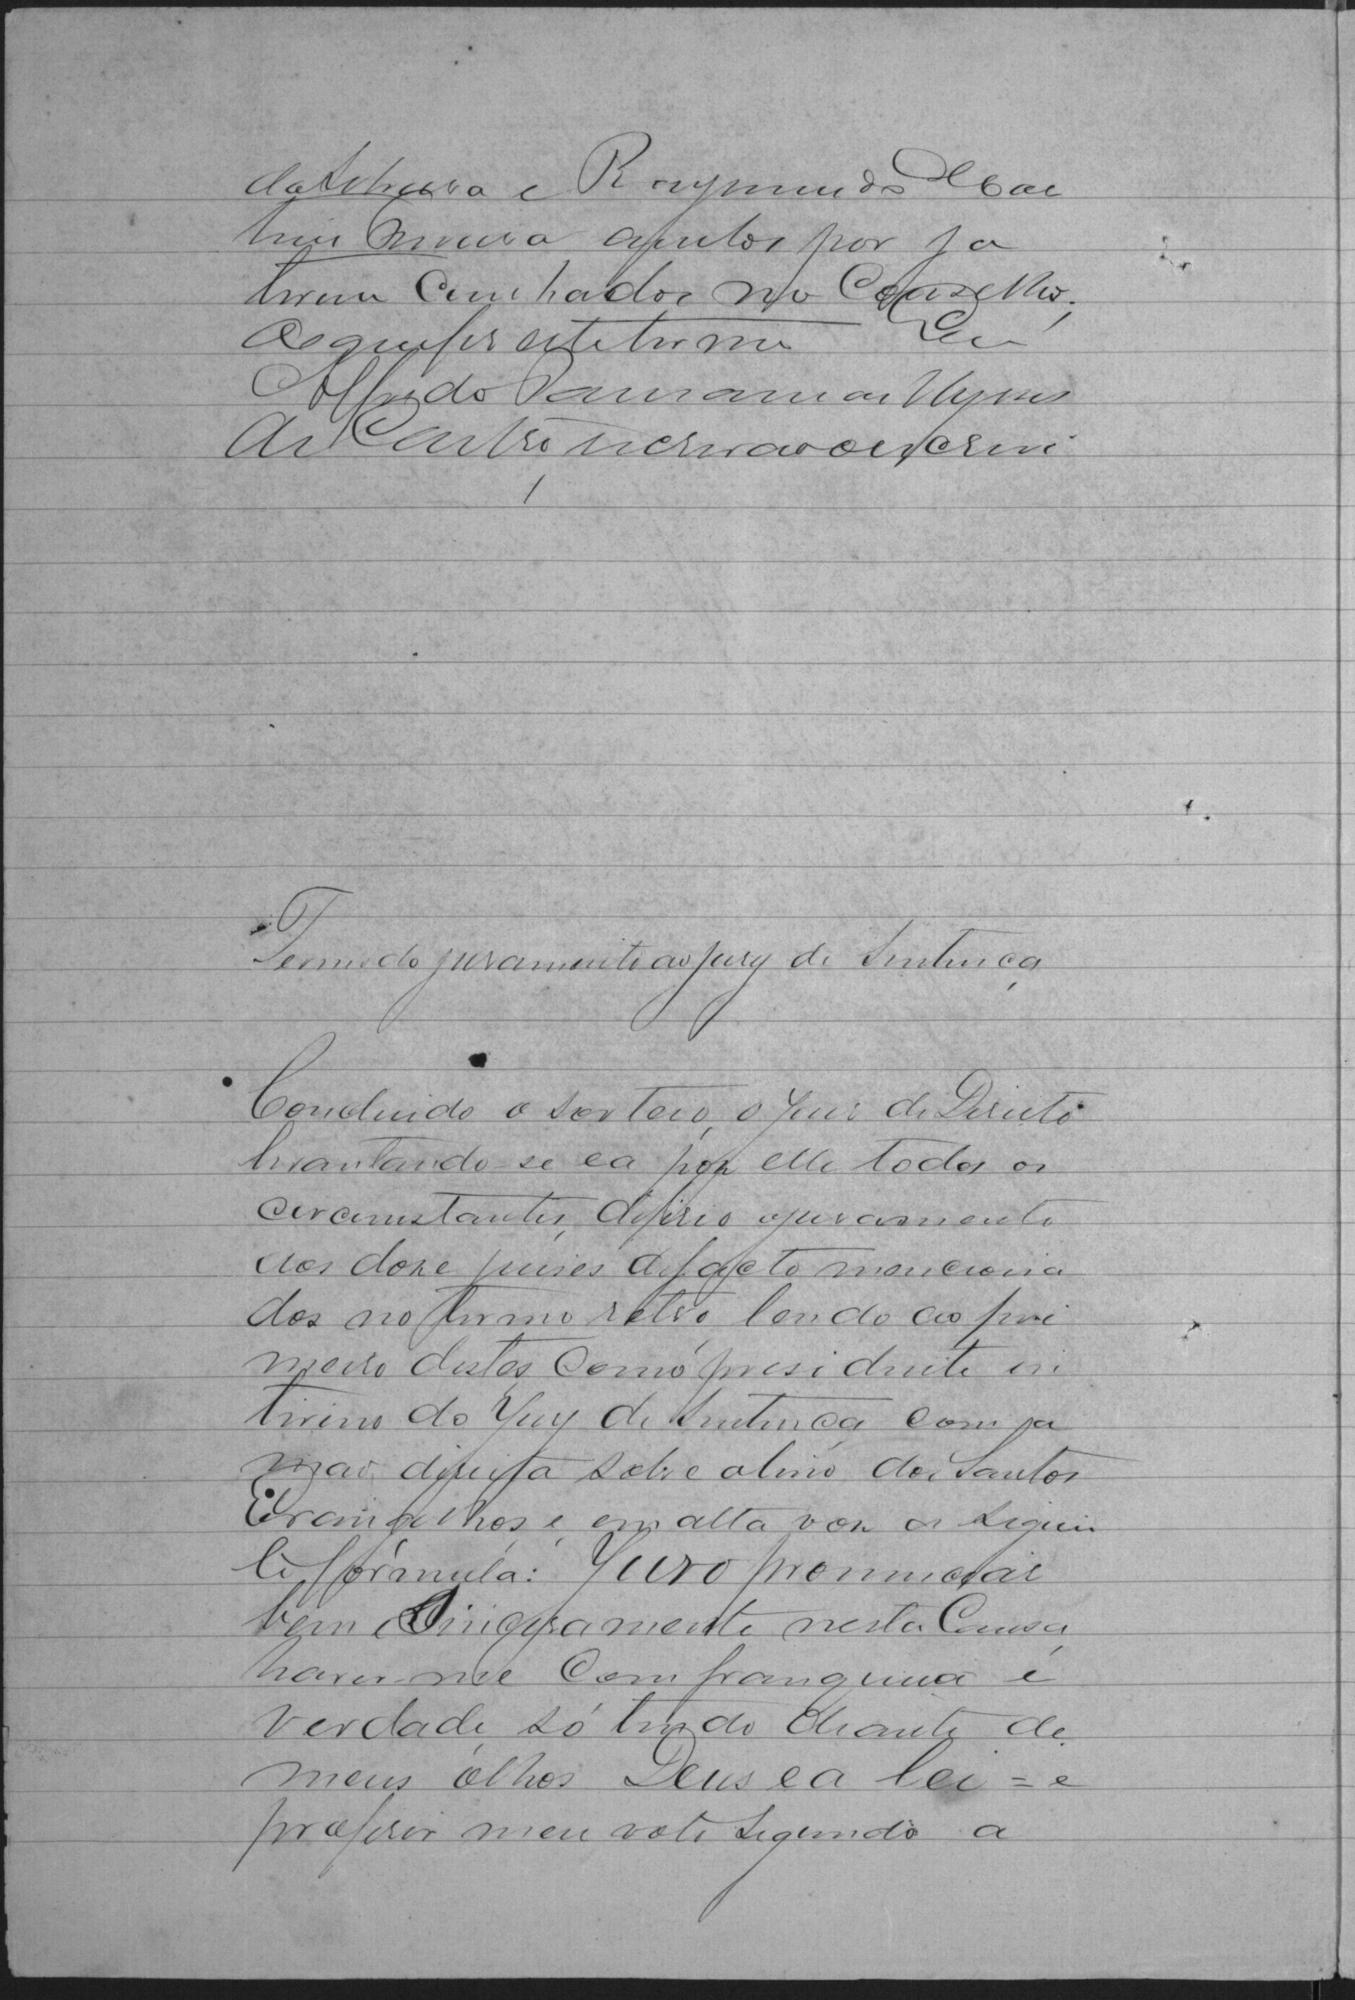 da Silveira e Raymundo Mar
tins         por ja
terem cunhados no Conselho;
de que fis este termo Eu
Alfredo         
de Castro escrivao o escrevi
Termo do juramento ao jury de Sentença
Concluido o sorteio, o Juis de Direito
levantando-se e a por elle todos os
circunstantes, deferio o juramento
aos doze juises de facto menciona
dos no termo retro lendo ao pri
meiro destes como presidente in
tirino do Jury de Sentença com a
mão direita sobre o livro dos Santos
Evangelhos e em alta voz a seguin
te fórmula: Juro pronunciar
bem e Sinceramente nesta Causa,
haver-me com franquesa e
verdade, só tendo diante de
meus olhos Deus e a lei = e
proferir meu voto segundo a